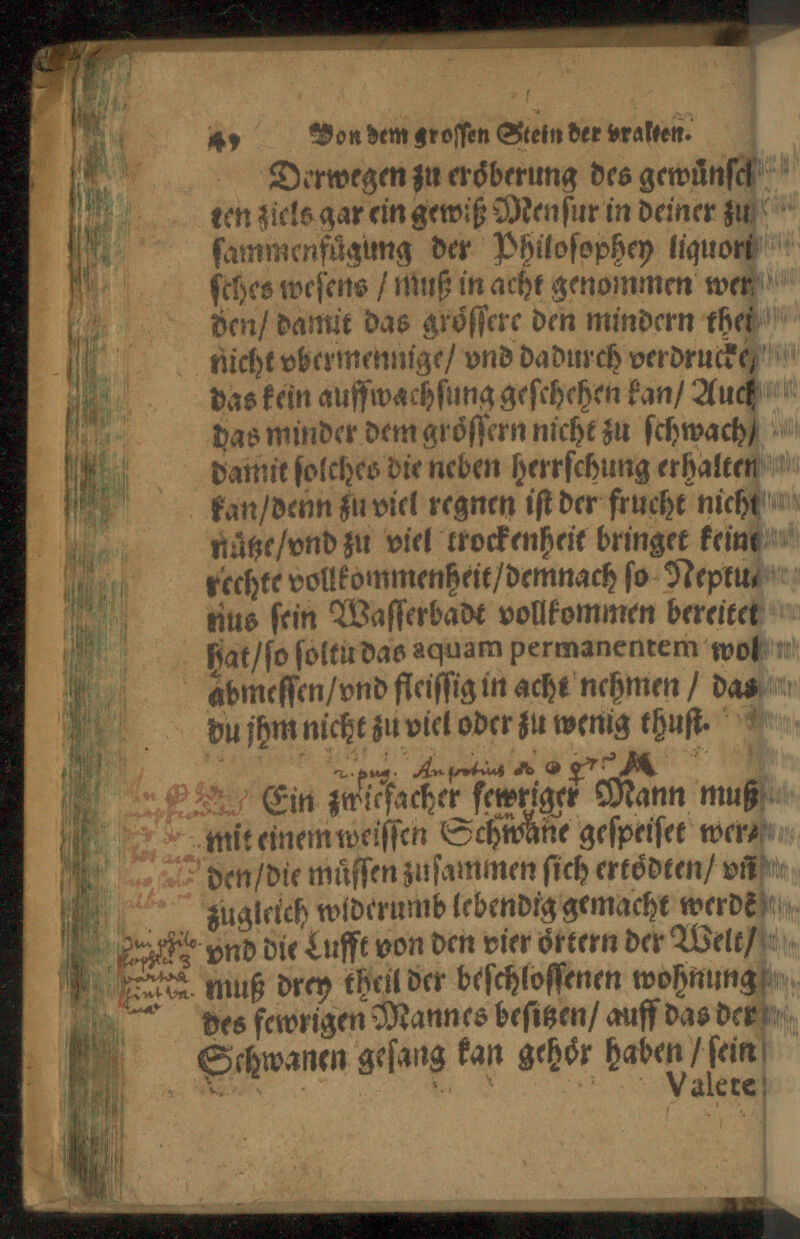 Von dem grossen Stein der vralten.
Derwegen zu eröberung des gewünsch
ten ziels gar ein gewiß Mensur in deiner zu
sammenfügung der Philosophey liquori
sches wesens / muß in acht genommen wer
den/ damit das grössere den mindern thei
nicht vbermennige/ vnd dadurch verdrucke/
das kein auffwachsung geschehen kan/ Auch
das minder dem grössern nicht zu schwach/
damit solches die neben herrschung erhalten
kan/denn zu viel regnen ist der frucht nicht
nütze/vnd zu viel trockenheit bringet keine
rechte vollkommenheit/demnach so Neptu⸗
nus sein Wasserbadt vollkommen bereitet
hat/so soltu das aquam permanentem wol
abmessen/vnd fleissig in acht nehmen / das
du jhm nicht zu viel oder zu wenig thust.
Ein zwiefacher fewriger Mann muß
mit einem weissen Schwane gespeiset wer⸗
den/die müssen zusammen sich ertödten/ vñ
zugleich widerumb lebendig gemacht werdẽ
vnd die Lufft von den vier örtern der Welt/
muß drey theil der beschlossenen wohnung
des fewrigen Mannes besitzen/ auff das der
Schwanen gesang kan gehör haben / sein
Valete